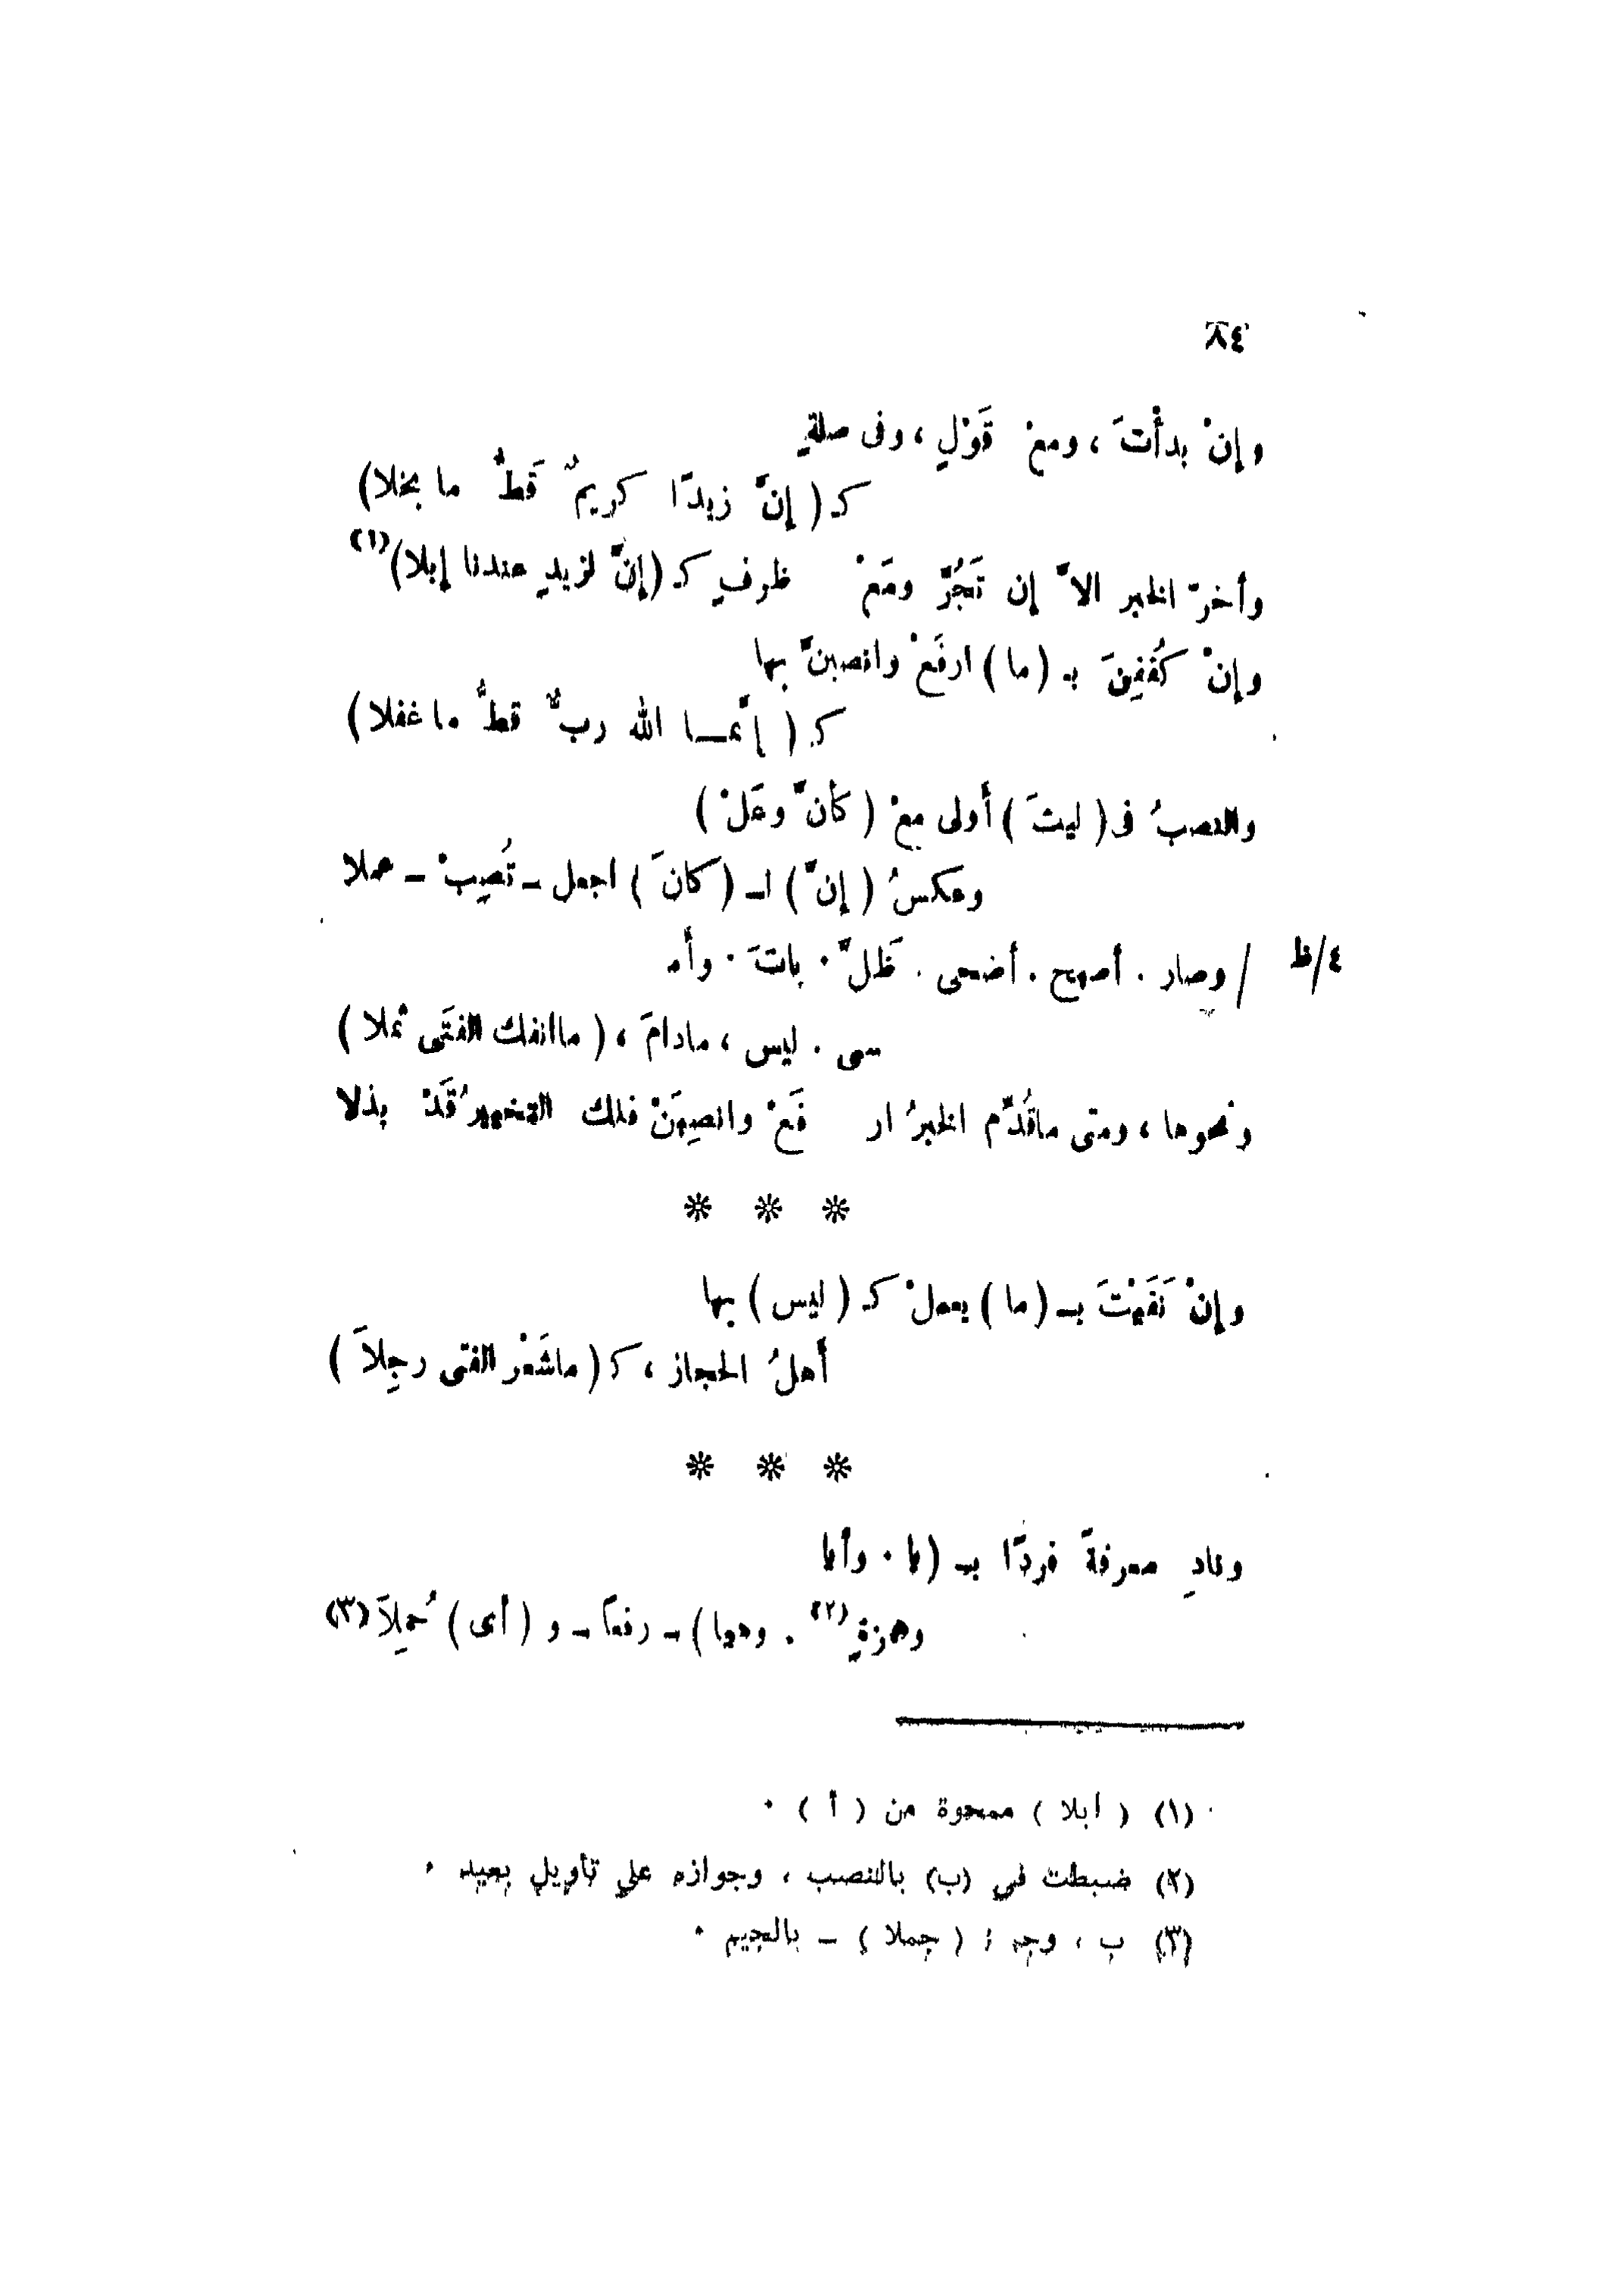 ٨٤
وإنْ بدأْتَ ، ومعْ قَوْلٍ ، وفى صلةٍ
كـ ( إنّ زيدًا كريمٌ قطُّ ما بخلا)
وأخرّ الخبر الاّ إن تَجُرّ ومَعْ ظرفٍ كـ (إنّ لزيدٍ عندنا إبلا)(١)
وإنْ كُففِنَ بـ (ما) ارفَعْ وانصبنّ بها
كـ ( إنّمـا الله ربٌّ قطُّ ما غفلا)
والنصبُ فى (ليتَ) أولى معْ ( كأنّ وعَلْ )
وعكسُ ( إنّ ) لـ ( كانَ ) اجعل ـ تُصِبْ ـ عملا
٤/ظ / وصار . أصبح . أضحى . ظَلّ . باتَ . وأمـ
سى . ليس ، مادامَ ، ( ماانفك الفتَى ثملا )
ونحوها ، ومتى ماقُدّم الخبرُ ار فَعْ وانصِبَنْ فلك التخييرُ قَدْ بذلا
* * *
وإنْ نَفَيْتَ بـ (ما) يعملْ كـ ( ليس ) بها
أهلُ الحجاز ، كـ ( ماشَعْر الفتى رجِلاَ )
* * *
ونادِ معرفةً فردًا بـ (يا . وأيا
وهمزةٍ(٢) . وهيا ) ـ رفعاً ـ و ( أى ) حُمِلاَ(٣)
(١) ( ابلا ) ممحوة من ( أ ) .
(٢) ضبطت في (ب) بالنصب ، وجوازه على تأويل بعيد .
(٣) ب ، وجـ : ( جملا ) ـ بالجيم .